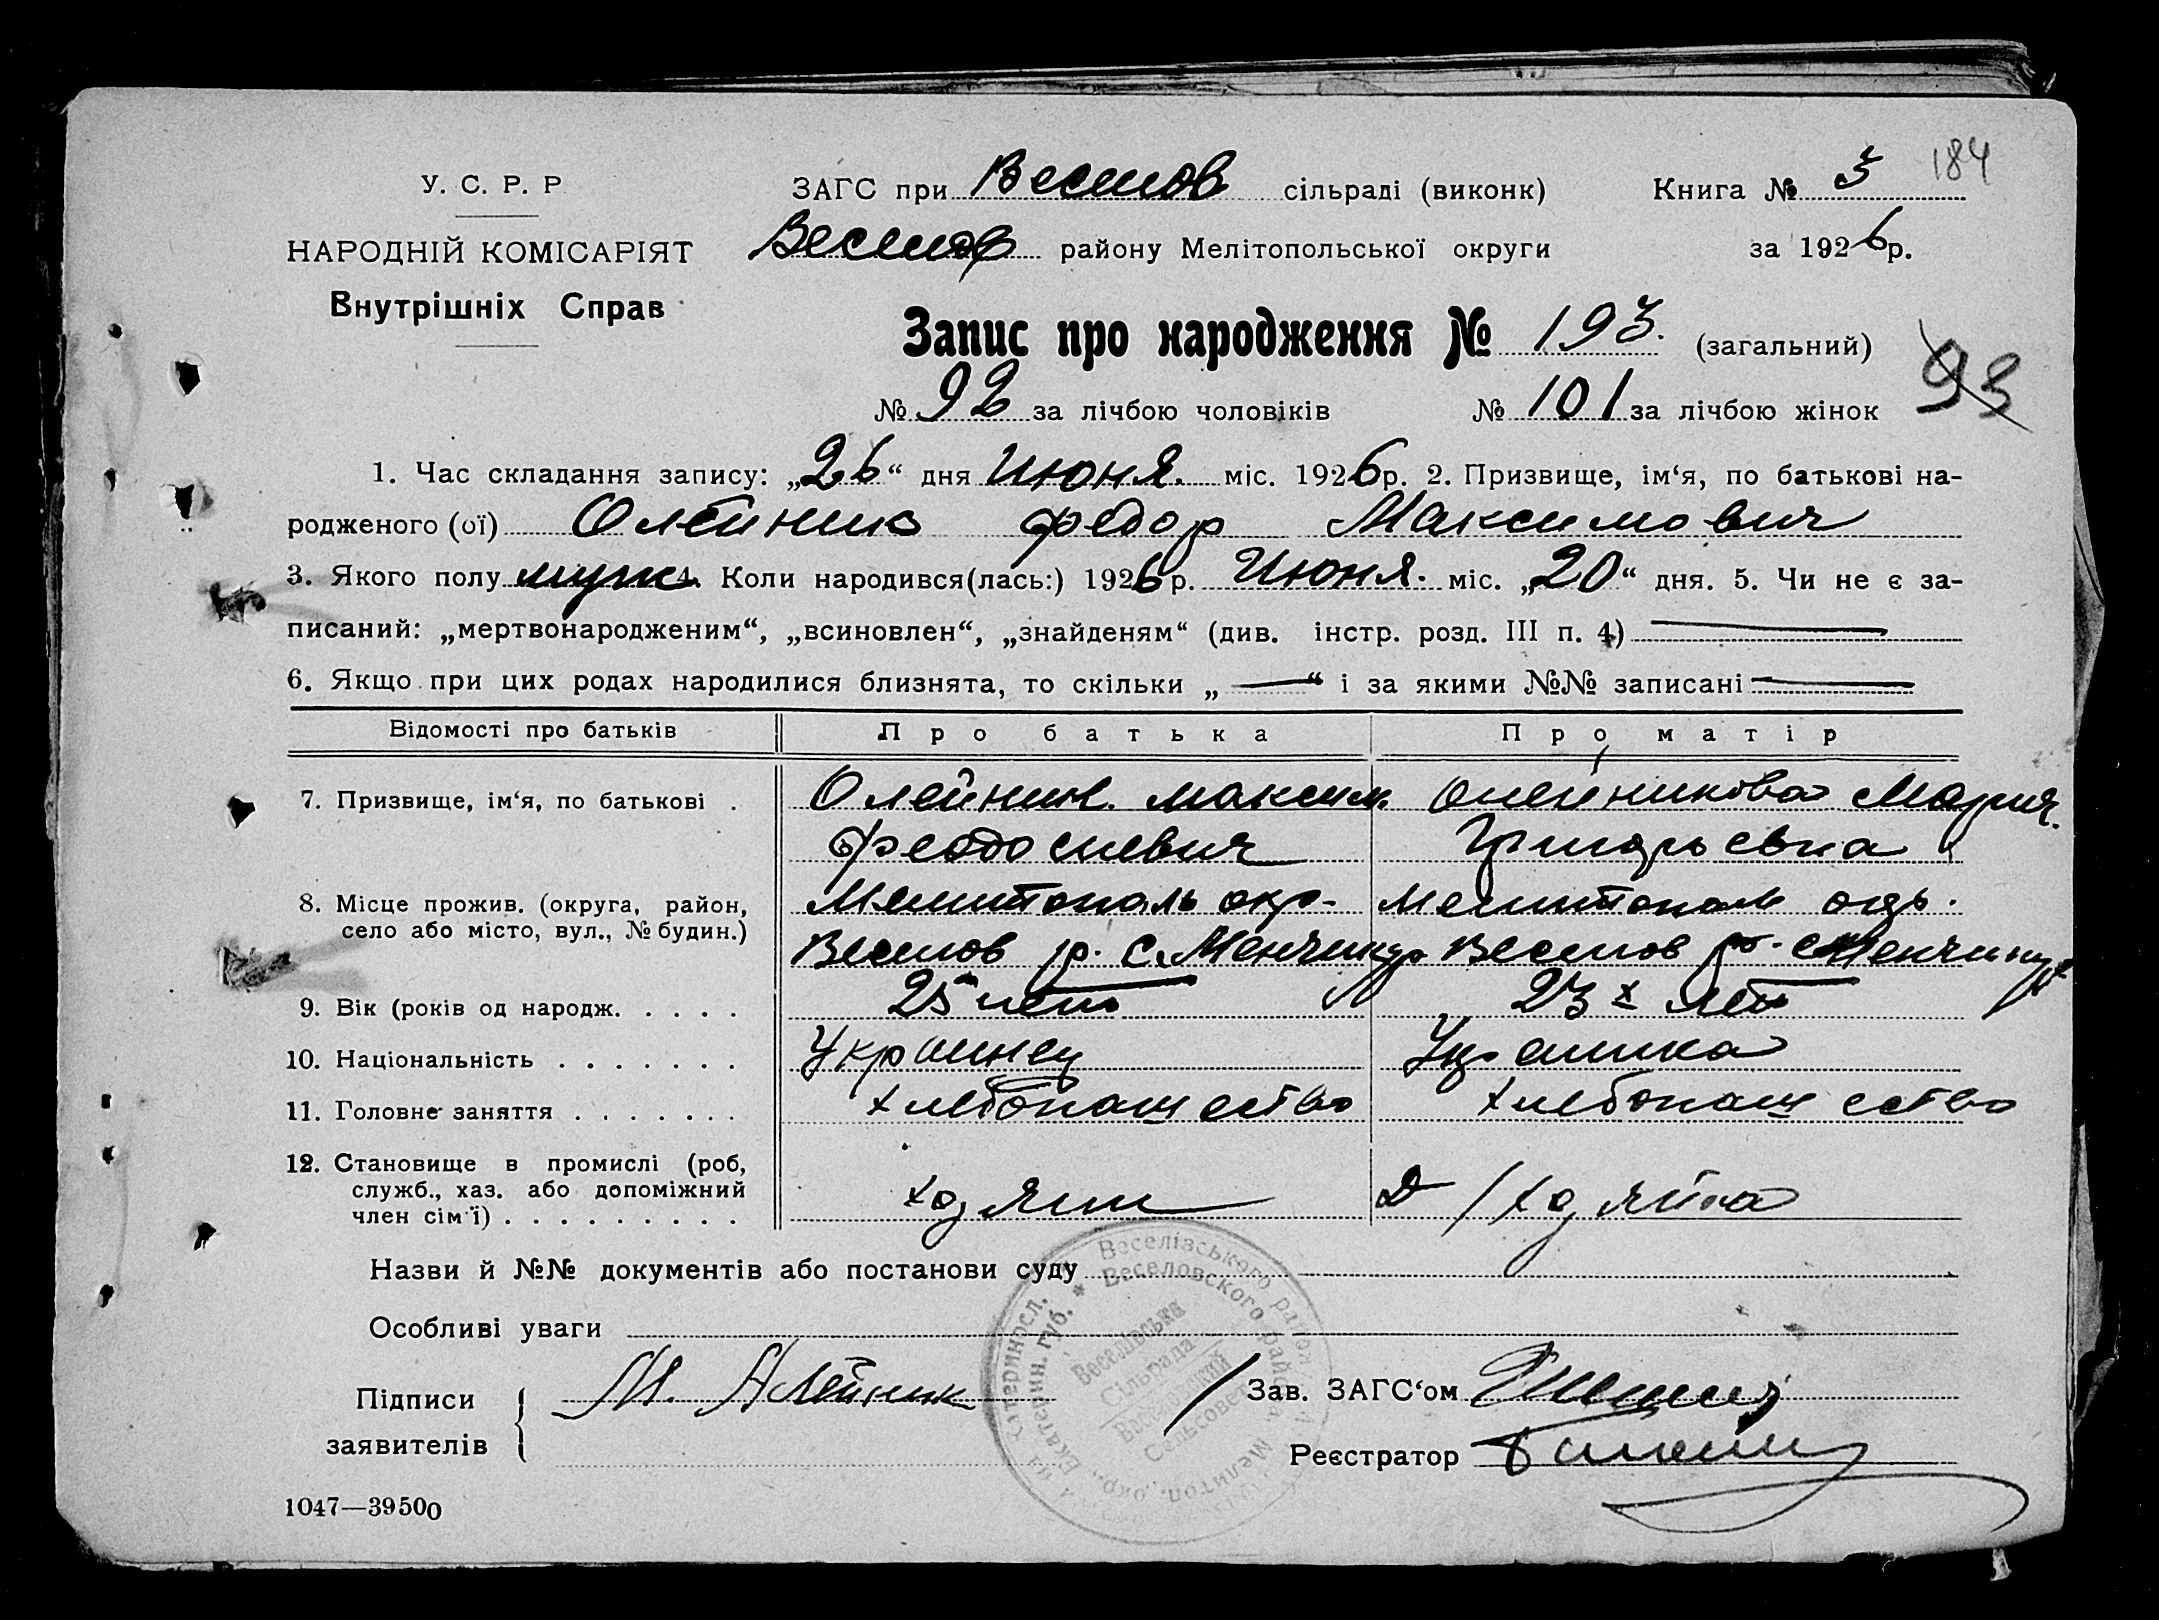 184
У. С. Р. Р
ЗАГС при Веселов сільраді (виконк) Книга № 3
НАРОДНІЙ КОМІСАРІЯТ Веселов району Мелітопольської округи за 1926 р.
Внутрішніх Справ
Запис про народження № 193. (загальний)
93
№ 92 за лічбою чоловіків № 101 за лічбою жінок
1. Час складання запису: „26“ дня Июня. міс. 1926 р. 2. Призвище, ім‘я, по батькові на-
родженого (ої) Олейник Федор Максимович
3. Якого полу муж 4. Коли народився(лась:) 1926 р. Июня. міс. „20“ дня. 5. Чи не є за-
писаний: „мертвонародженим“, „всиновлен“, „знайденям“ (див. інстр. розд. III п. 4)
6. Якщо при цих родах народилися близнята, то скільки „ — “ і за якими №№ записані —
Відомості про батьків Про батька Про матір
7. Призвище, ім‘я, по батькові . Олейник Максим Олейникова Мария
Феодосиевич Григорьевна
8. Місце прожив. (округа, район, Мелитополь окр. Мелитополь окр.
село або місто, вул., № будин.) Веселов р. с. Менчикур Веселов р. с Менчикур
9. Вік (років од народж. . . . . 25 лет 23 х лет
10. Національність . . . . . . . Украинец Украинка
11. Головне заняття . . . . . . . хлебопашество хлебопашество
12. Становище в промислі (роб,
служб., хаз. або допоміжний
член сім‘ї) . . . . . . . . . хозяин Д/хозяйка
Назви й №№ документів або постанови суду
Особливі уваги
Веселівського район
Веселовского района
Катериносл.
Екатерин. губ.
Мелитоп. окр.
Веселівська
Сільрада
Веселовский
Сельсовет
Підписи М. Алейник Зав. ЗАГС‘ом
заявителів Реєстратор
1047—39500